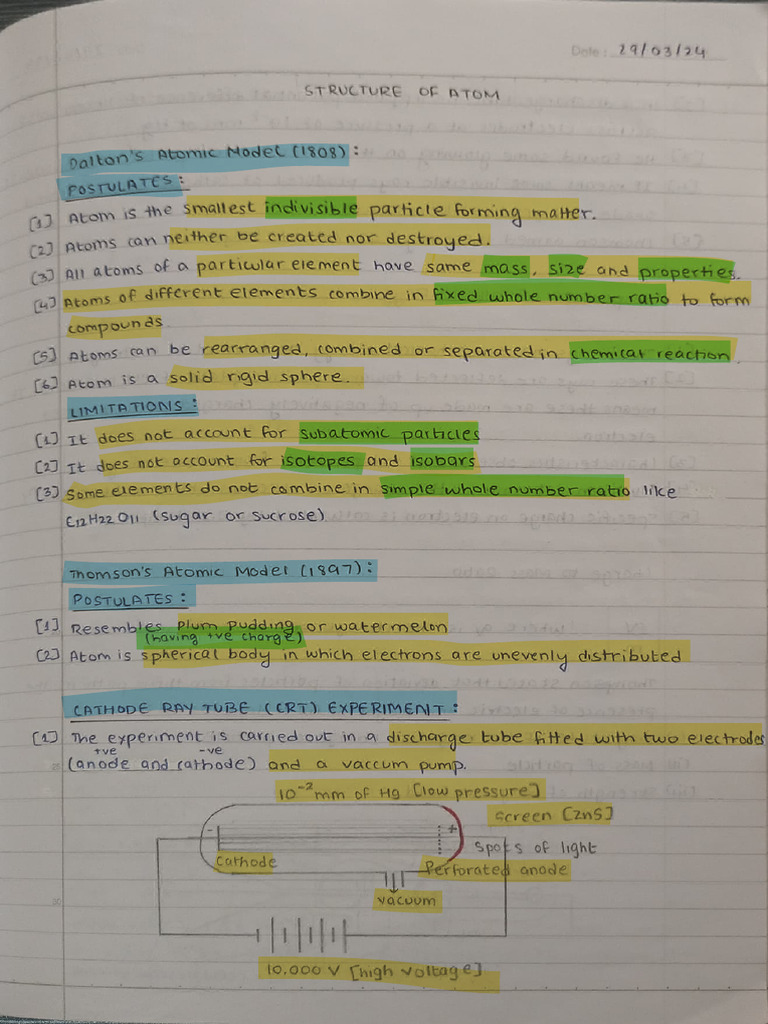 Date: 29/03/24
STRUCTURE OF ATOM
Dalton's Atomic Model (1808):
POSTULATES:
[1] Atom is the smallest indivisible particle forming matter.
[2] Atoms can neither be created nor destroyed.
[3] All atoms of a particular element have same mass, size and properties.
[4] Atoms of different elements combine in fixed whole number ratio to form
compounds
[5] Atoms can be rearranged, combined or separated in chemical reaction.
[6] Atom is a solid rigid sphere.
LIMITATIONS:
[1] It does not account for subatomic particles
[2] It does not account for isotopes and isobars
[3] Some elements do not combine in simple whole number ratio like
C12H22O11 (sugar or sucrose)
Thomson's Atomic Model (1897):
POSTULATES:
[1] Resembles plum pudding or watermelon
(having +ve charge)
[2] Atom is spherical body in which electrons are unevenly distributed
CATHODE RAY TUBE (CRT) EXPERIMENT:
[1] The experiment is carried out in a discharge tube fitted with two electrodes
+ve -ve
(anode and cathode) and a vaccum pump.
10⁻² mm of Hg [low pressure]
Screen [ZnS]
- +
spots of light
Cathode
Perforated anode
vacuum
10.000 V [high voltage]